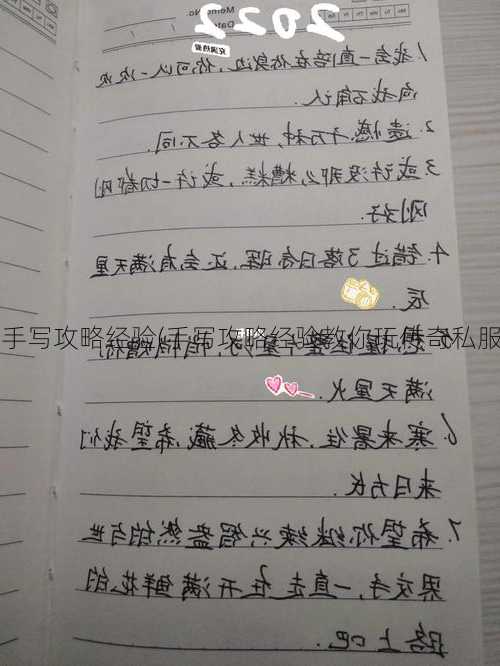 2022
Memo No.
Date
1.我会一直陪在你身边,你可以一次次
向我确认.
2.遗憾千万种,世人各不同.
3.或许没那么糟糕,或许一切都刚
刚好.
4.错过了落日余晖,还会有满天星
辰.
手写攻略经验(手写攻略经验教你玩传奇私服
满天星火.
6.寒来暑往,秋收冬藏,希望我们
来日方长.
7.希望你继续兴智盎然的与世
界交手,一直走在开满鲜花的
路上吧.